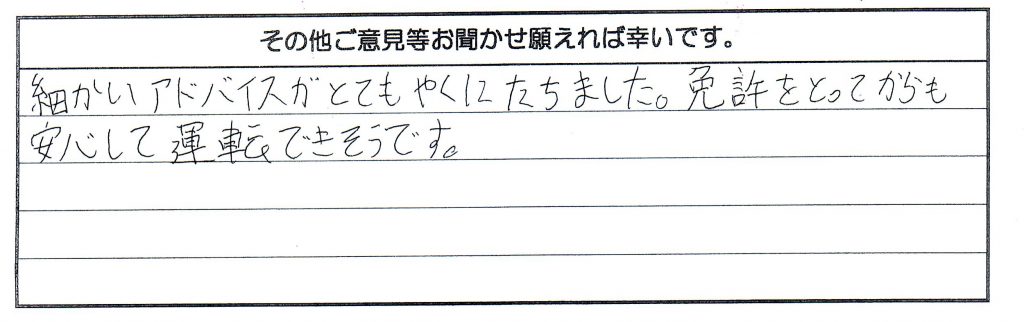 その他ご意見等お聞かせ願えれば幸いです。
細かいアドバイスがとてもやくにたちました。免許をとってからも
安心して運転できそうです。